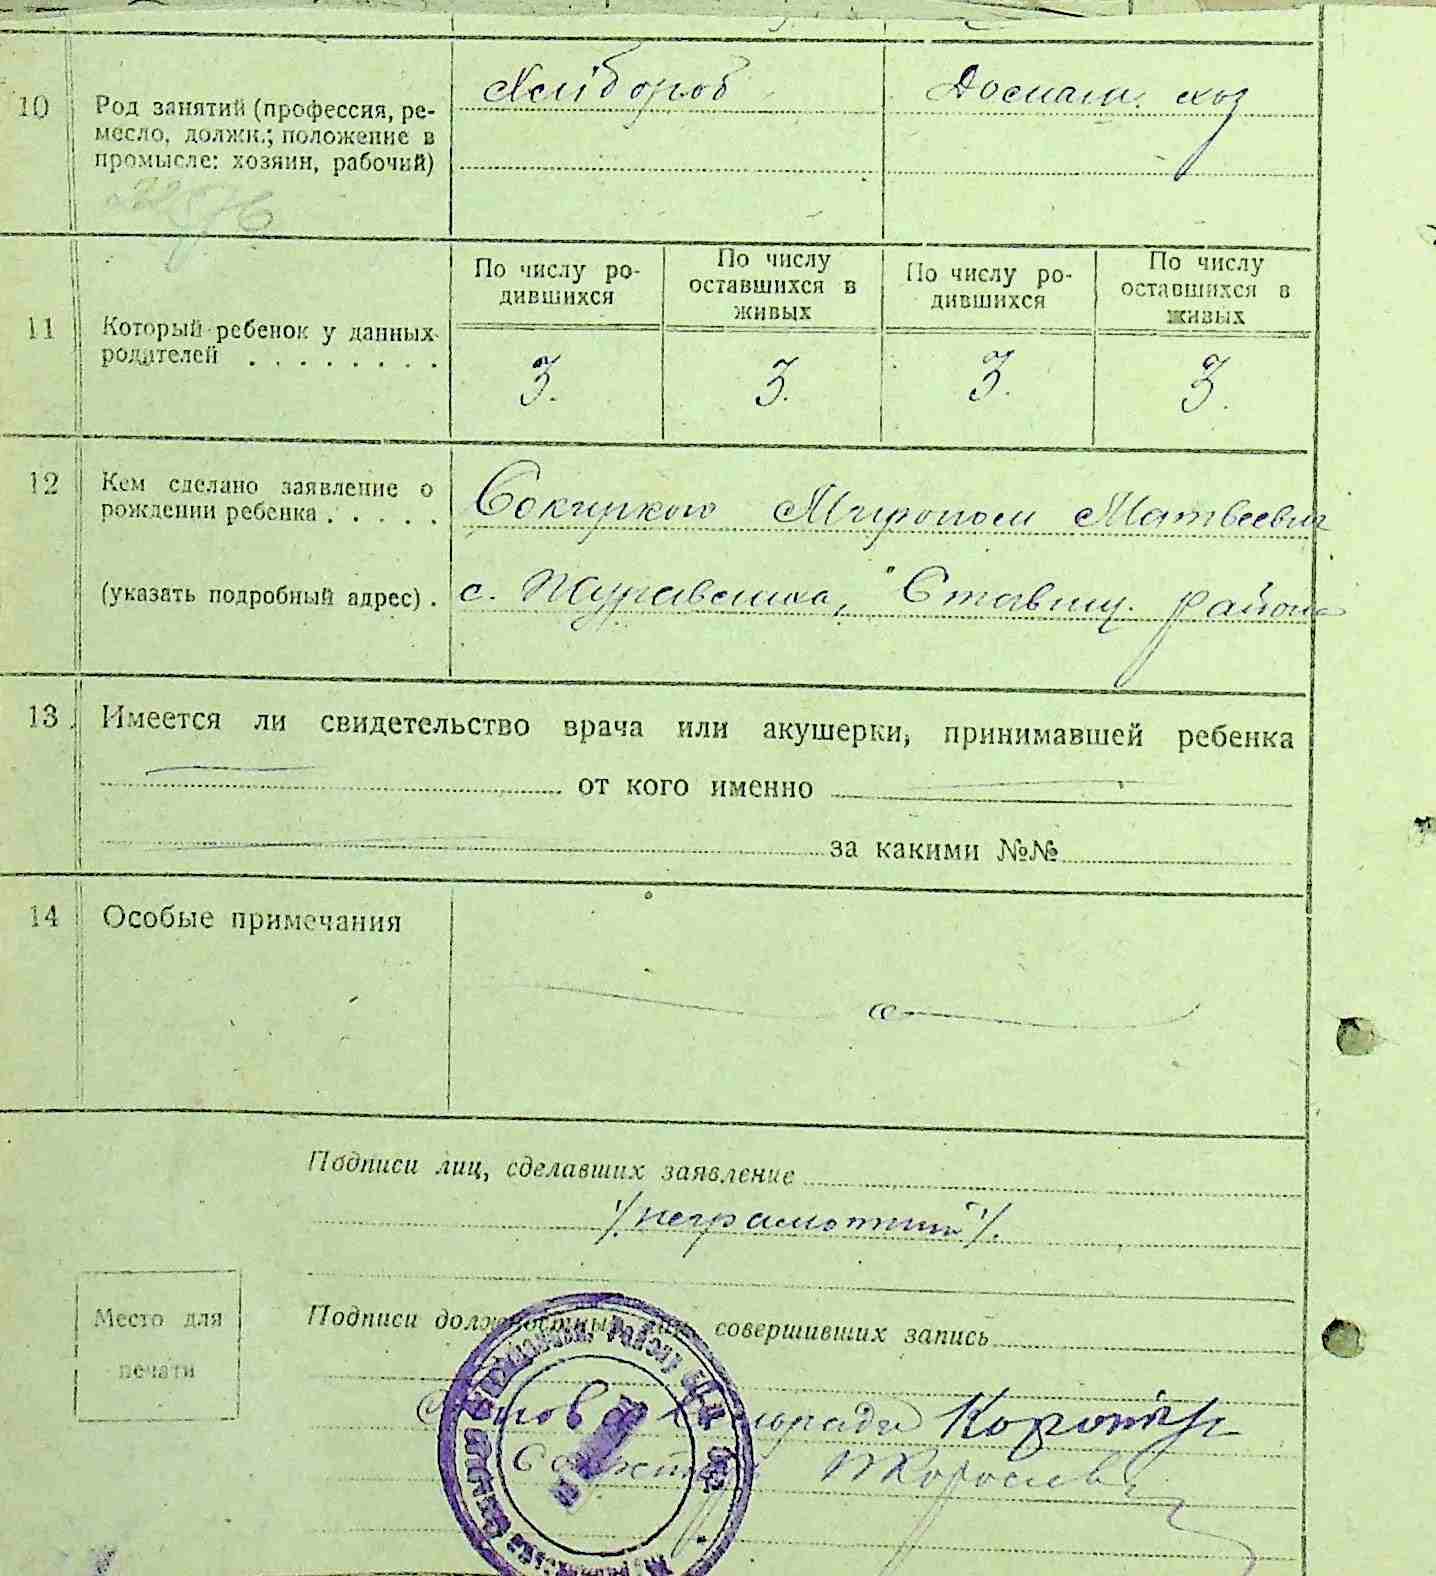 10 Род занятий (профессия, ре-
месло, должн.; положение в
промысле: хозяин, рабочий)
Хлібороб
Домаш. хоз
11 Который ребенок у данных
родителей . . . . . . . .
По числу ро-
дившихся
По числу
оставшихся в
живых
По числу ро-
дившихся
По числу
оставшихся в
живых
3. 3. 3. 3.
12 Кем сделано заявление о
рождении ребенка . . . . .
Мироном Матвеевич
(указать подробный адрес) .
с. Журавлиха, Ставищ. района
13 Имеется ли свидетельство врача или акушерки, принимавшей ребенка
от кого именно
за какими №№
14 Особые примечания
Подписи лиц, сделавших заявление
/неграмотний/.
Место для
печати
Подписи совершивших запись